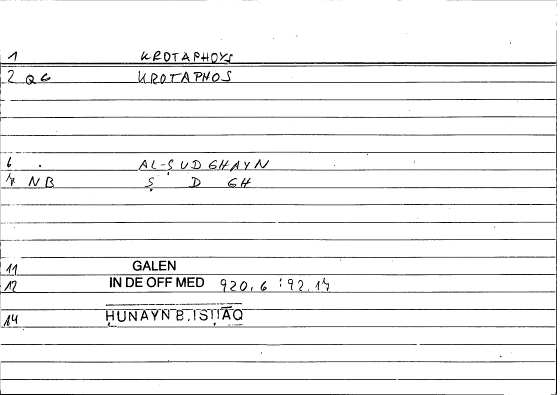 1 KROTAPHOYS
2 QG KROTAPHOS
6 . AL-ṢUDGHAYN
7 NB Ṣ D GH
11 GALEN
12 IN DE OFF MED 920,6 : 92.17
14 ḤUNAYN B. ISḤĀQ